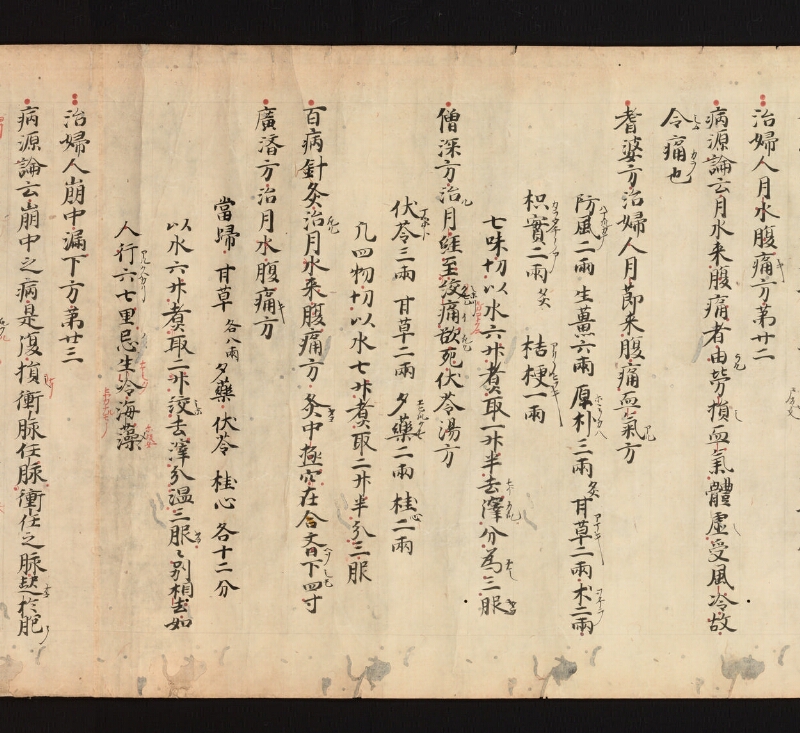 治婦人月水腹痛方第廿二
病源論云月水来腹痛者由勞損血氣體虛受風冷故
令痛也
耆婆方治婦人月節来腹痛血氣方
防風二兩生薑六兩厚朴三兩炙甘草二兩朮二兩
枳實二兩炙 桔梗一兩
七味切以水六升煮取一升半去滓分為三服
僧深方治月経至絞痛欲死伏苓湯方
伏苓三兩 甘草二兩 夕藥二兩 桂心二兩
凡四物切以水七升煮取二升半分三服
百病針灸治月水来腹痛方 灸中極穴在合文下四寸
廣濟方治月水腹痛方
當歸 甘草各八兩 夕藥 伏苓 桂心各十二分
以水六升煮取二升絞去滓分温三服〻別相去如
人行六七里忌生冷海藻
治婦人崩中漏下方第廿三
病源論云崩中之病是傷損衝脉任脉衝任之脉起於胞